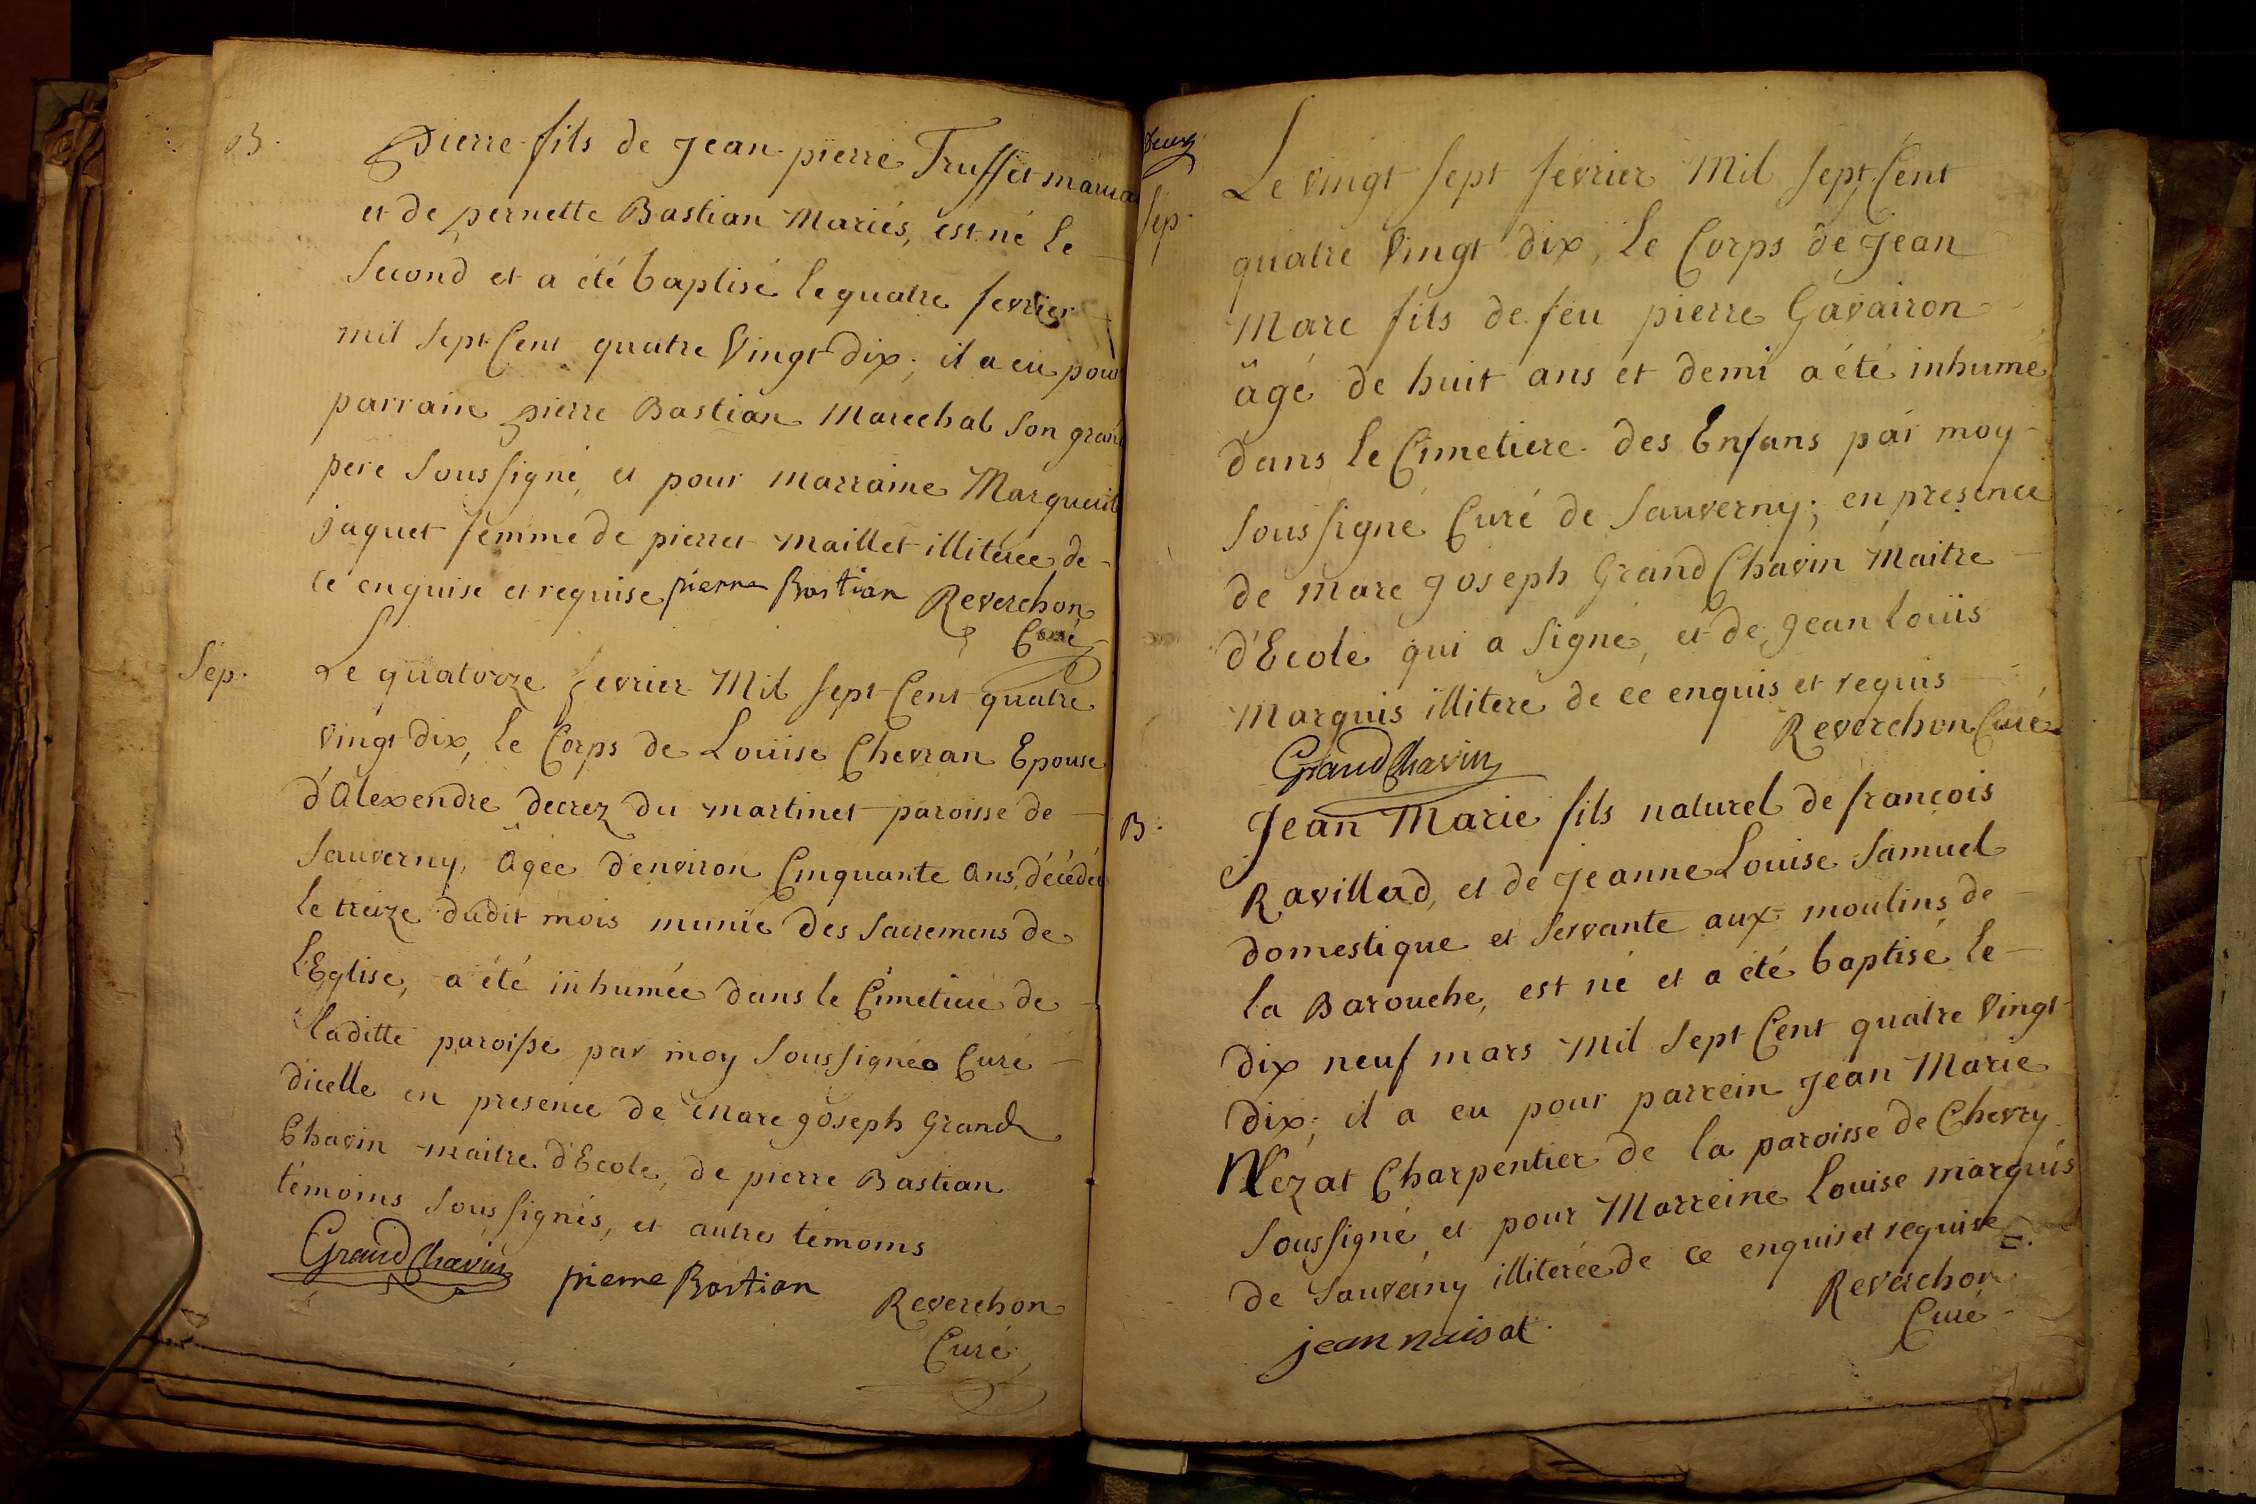 B.
Pierre fils de Jean pierre Truffet
et de pernette Bastian Mariés, est né le
Second et a été baptisé le quatre fevrier
mil Sept Cent quatre Vingt dix; il a eu pour
parrain pierre Bastian Marechal Son grand
pere Soussigné, et pour marraine Marguerit
jaquet femme de pierre Maillet illiterée de
ce enquise et requise pierre Bastian Reverchon
Curé
Sép.
Le quatorze fevrier Mil Sept Cent quatre
Vingt dix, le Corps de Loüise Chevran Epouse
d'Alexendre Decrez du martinet paroisse de
Sauverny, Agée d'environ Cinquante Ans, décédée
le treize dudit mois munie des Sacremens de
l'Eglise, a été inhumée dans le Cimetiere de
laditte paroisse par moy Soussigné Curé
d'icelle en presence de Marc Joseph Grand
Chavin maitre d'Ecole, de pierre Bastian
témoins Soussignés, et autres témoins
Grand Chavin pierre Bastian
Reverchon
Curé
Sép.
Le vingt Sept fevrier Mil Sept Cent
quatre Vingt dix, le Corps de Jean
Marc fils de feu pierre Gavairon
âgé de huit ans et demi a été inhumé
dans le Cimetiere des Enfans par moy
Soussigné Curé de Sauverny; en presence
de Marc Joseph Grand Chavin Maitre
d'Ecole qui a Signé, et de Jean Loüis
Marquis illiteré de ce enquis et requis
Reverchon Curé
Grand Chavin
B.
Jean Marie fils naturel de francois
Ravillad, et de Jeanne Louise Samuel
domestique et Servante aux moulins de
la Barouche, est né et a été baptisé le
dix neuf mars Mil Sept Cent quatre Vingt
dix; il a eu pour parrein Jean Marie
Nezat Charpentier de la paroisse de Chevry
Soussigné et pour Marreine Louise marquis
de Sauverny illiterée de ce enquis et requise
Reverchon
Curé
jean naisat